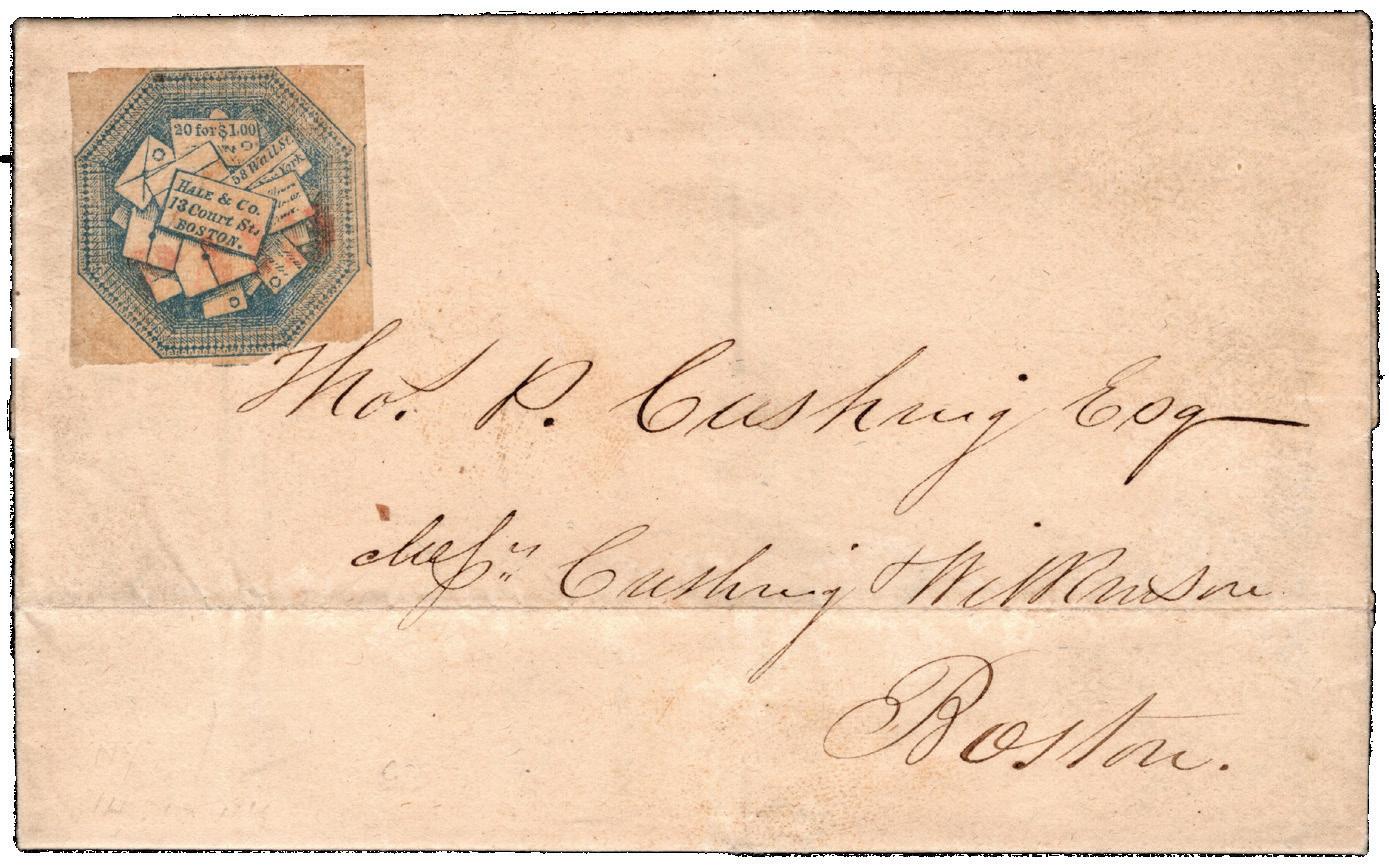 20 for $1.00
58 Wall St.
York
HALE & Co.
13 Court St.
BOSTON.
Tho.s P. Cushing Esq
Mess.rs Cushing & Wilkinson
Boston.
NY